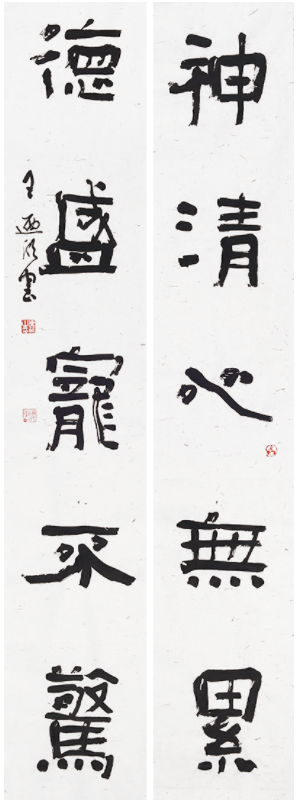 神清心無累
德盛寵不驚
王 書